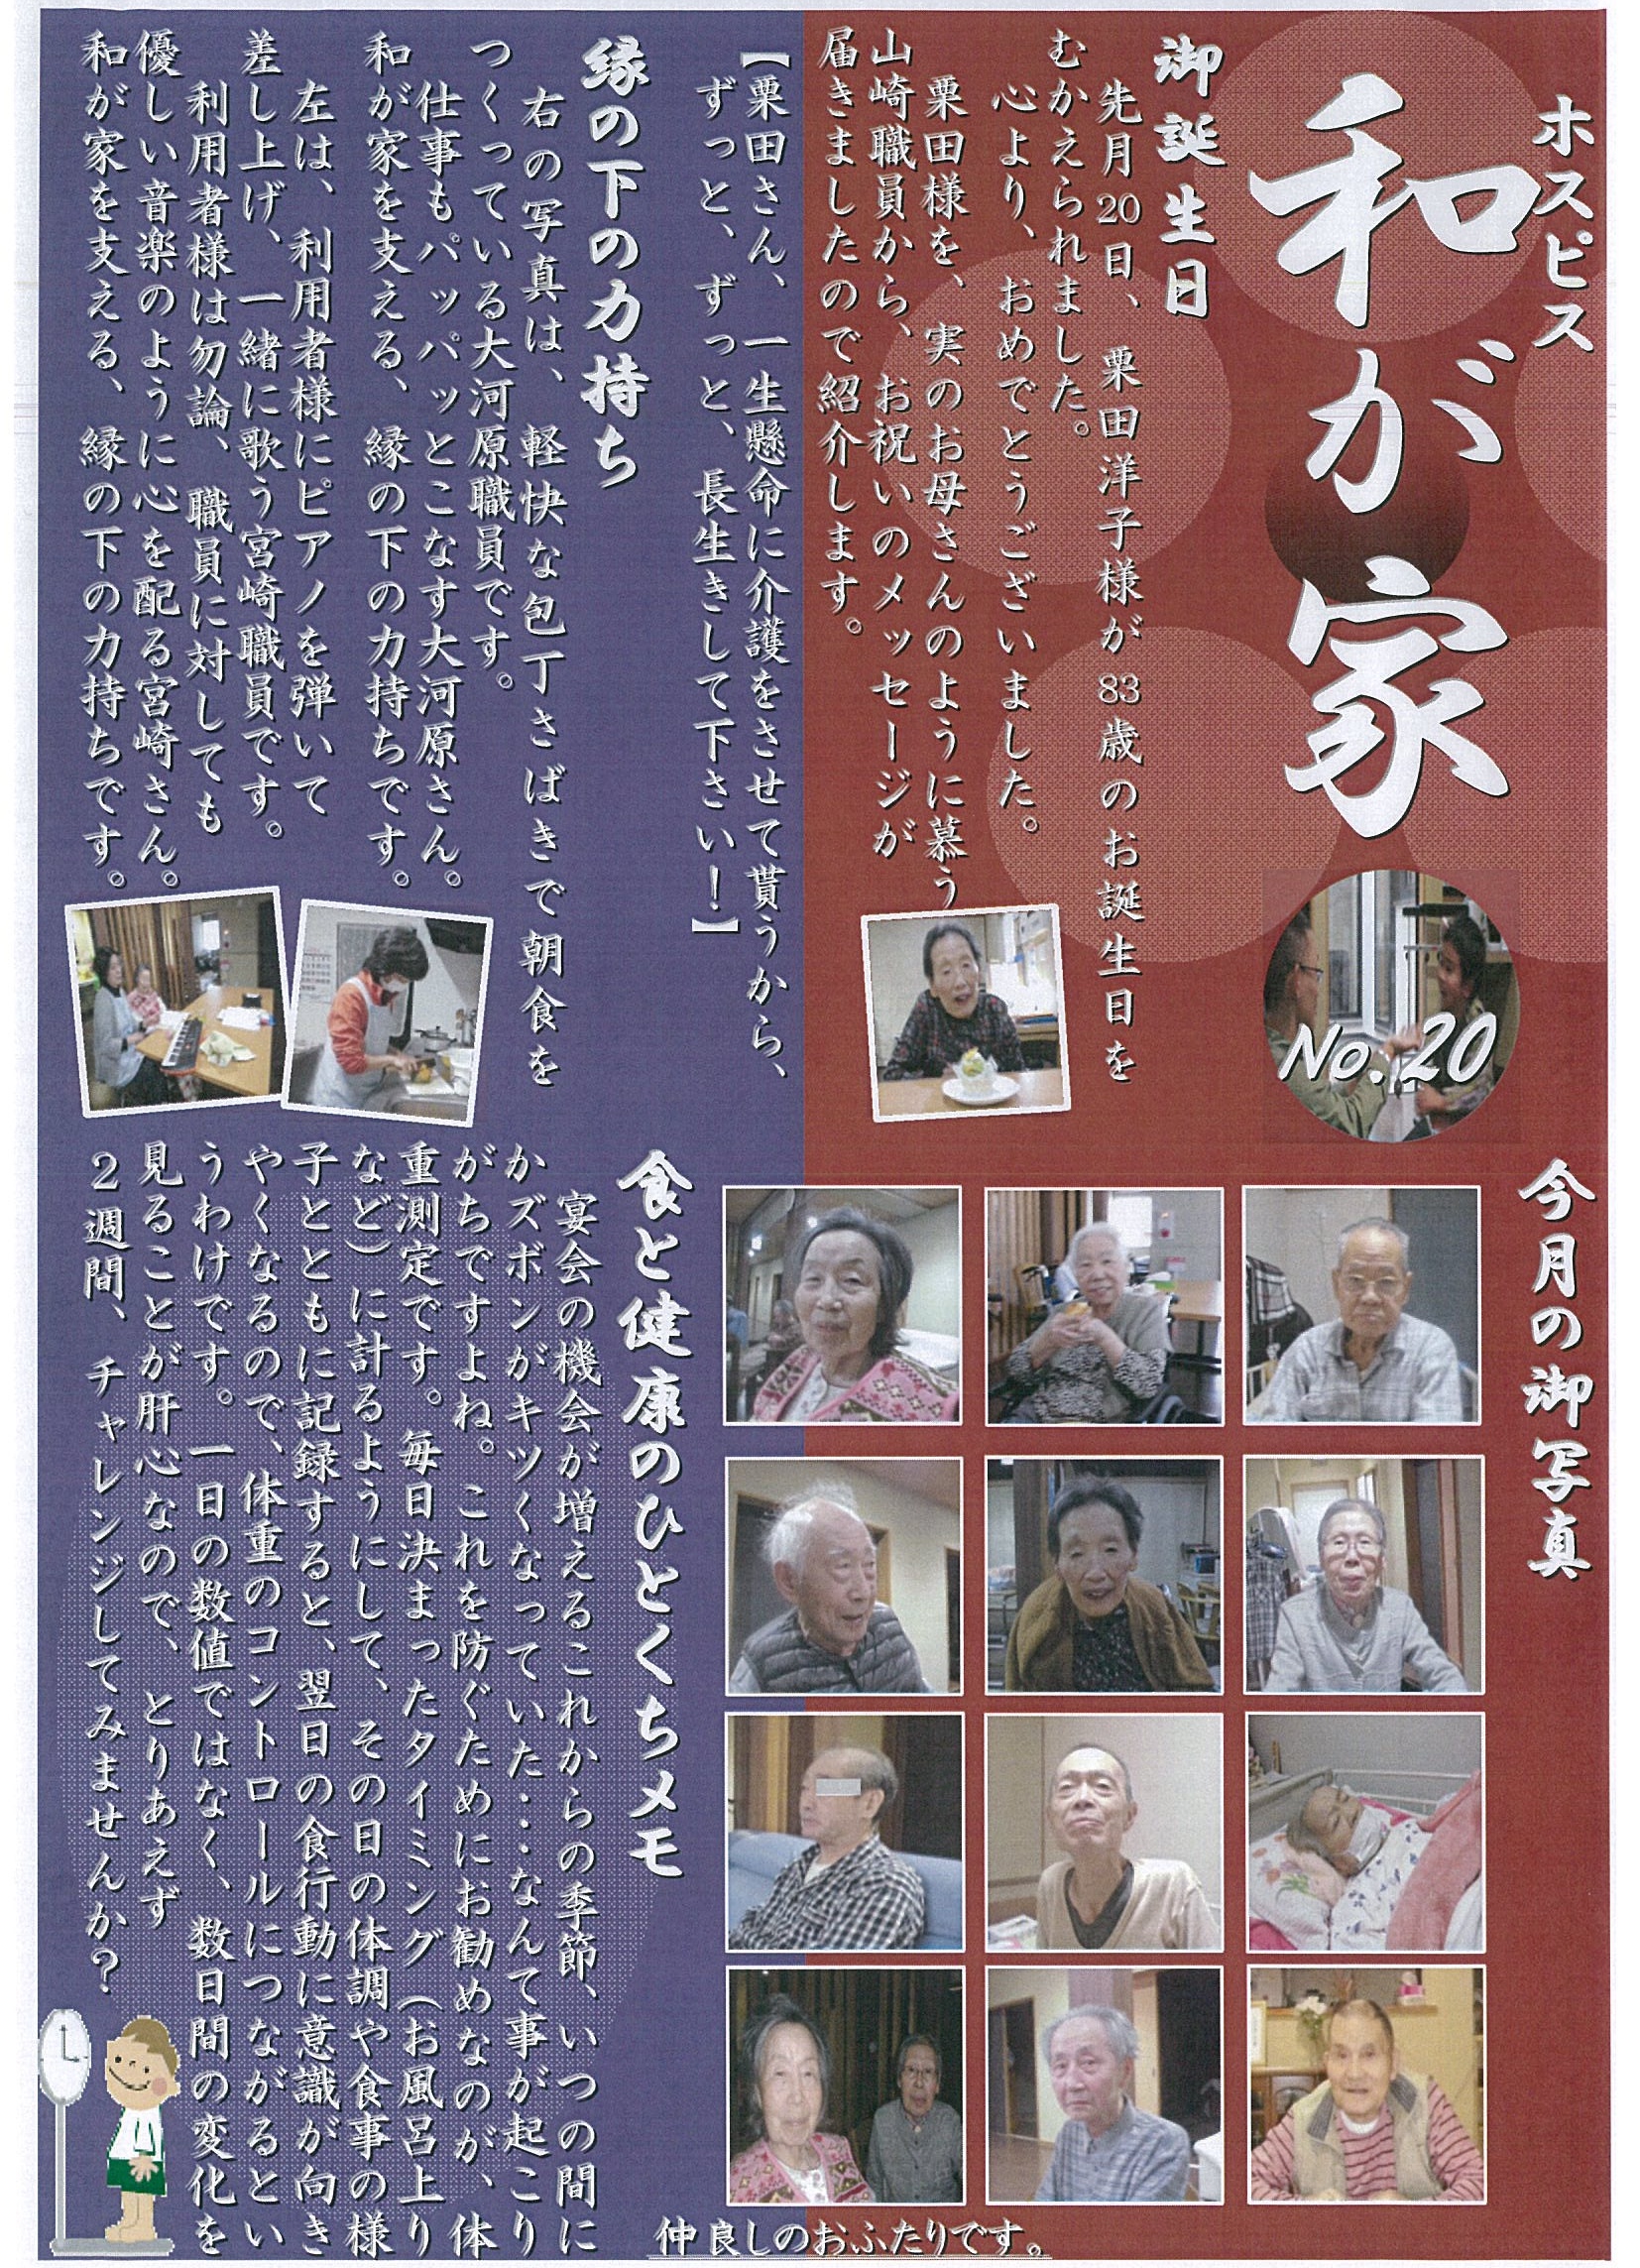 ホスピス
和が家
No.20
御誕生日
先月20日、栗田洋子様が83歳のお誕生日を
むかえられました。
心より、おめでとうございました。
栗田様を、実のお母さんのように慕う
山崎職員から、お祝いのメッセージが
届きましたので紹介します。
【栗田さん、一生懸命に介護をさせて貰うから、
ずっと、ずっと、長生きして下さい！】
縁の下の力持ち
右の写真は、軽快な包丁さばきで朝食を
つくっている大河原職員です。
仕事もパッパッとこなす大河原さん。
和が家を支える、縁の下の力持ちです。
左は、利用者様にピアノを弾いて
差し上げ、一緒に歌う宮崎職員です。
利用者様は勿論、職員に対しても
優しい音楽のように心を配る宮崎さん。
和が家を支える、縁の下の力持ちです。
今月の御写真
仲良しのおふたりです。
食と健康のひとくちメモ
宴会の機会が増えるこれからの季節、いつの間に
かズボンがキツくなっていた・・・なんて事が起こり
がちですよね。これを防ぐためにお勧めなのが、体
重測定です。毎日決まったタイミング（お風呂上り
など）に計るようにして、その日の体調や食事の様
子とともに記録すると、翌日の食行動に意識が向き
やくなるので、体重のコントロールにつながるとい
うわけです。一日の数値ではなく、数日間の変化を
見ることが肝心なので、とりあえず
２週間、チャレンジしてみませんか？